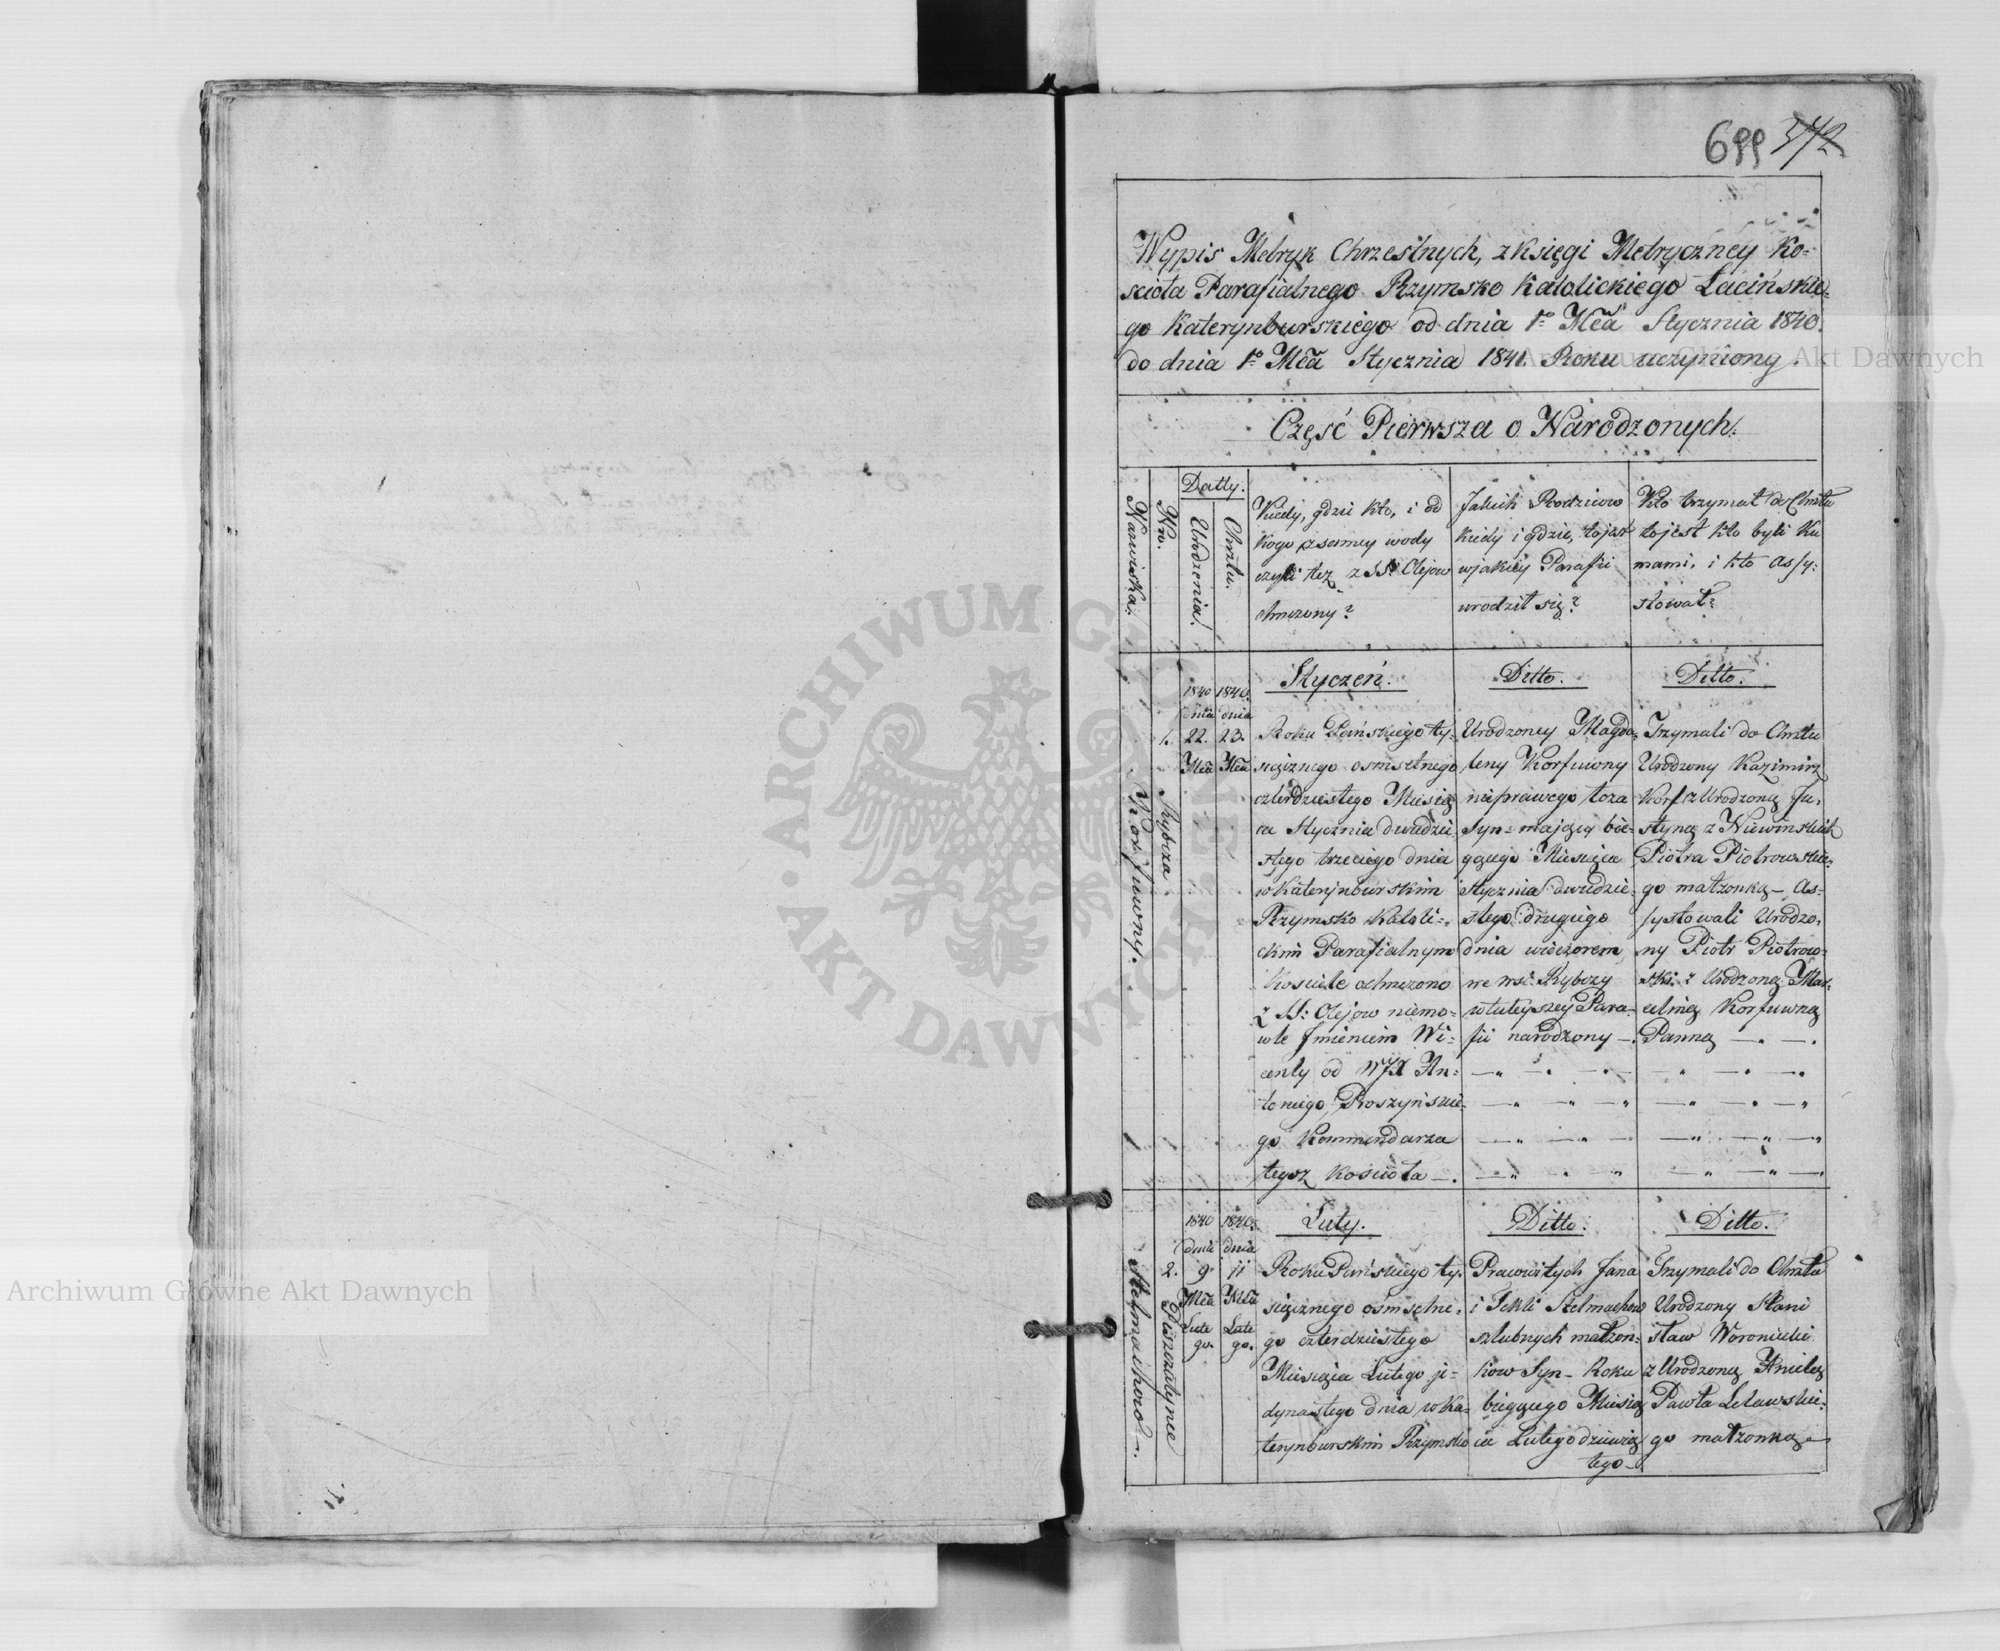 699 372
Wypis Metryk Chrzestnych, z księgi Metryczney Ko-
scioła Parafialnego Rzymsko Katolickiego Łacińskie-
go Katerynburskiego od dnia 1º Mca Stycznia 1840.
do dnia 1º Mca Stycznia 1841. Roku uczyniony.
Część Pierwsza o Narodzonych.
Nazwiska.
Nro.
Datty.
Urodzenia.
Chrztu.
Kiedy, gdzie kto, i od
kogo z samey wody
czyli też z SS. Olejow
chrzczony?
Jakich Rodzicow
kiedy i gdzie, to jest
w jakiey Parafii
urodził się?
Kto trzymał do Chrztu
to jest kto byli Ku
mami, i kto assy-
stował?
Korfuwny.
1.
Rybcza
1840
dnia
22.
Mca
1840.
dnia
23.
Mca
Styczeń.
Roku Pańskiego ty-
siącznego osmsetnego
czterdziestego Miesią
ca Stycznia dwudzie
stego trzeciego dnia
w Katerynburskim
Rzymsko Katoli-
ckim Parafialnym
Kosciele ochrzczono
z SS: Olejow niemo-
wle Imieniem Wi-
centy od WJX An-
toniego Roszyńskie-
go Kommendarza
tegoż Kościoła —.
Ditto.
Urodzoney Magda-
leny Korfuwny
nieprawego łoża
Syn - mający bie-
gącego Miesiąca
Stycznia dwudzie-
stego drugiego
dnia wieczorem
we wsi Rybczy
w tuteyszey Para-
fii narodzony —.
Ditto.
Trzymali do Chrztu
Urodzony Kazimirz
Korf z Urodzoną Ju-
styną z Niewinskich
Piotra Piotrowskie-
go małżonką — As-
systowali Urodzo-
ny Piotr Piotrow-
ski z Urodzoną Mar-
celiną Korfuwną
Panną — . — .
Stelmachow —.
2.
Piszczatynce
1840
dnia
9
Mca
Lute
go.
1840.
dnia
11
Mca
Lute
go.
Luty.
Roku Pańskiego ty-
siącznego osmsetne-
go czterdziestego
Miesiąca Lutego je-
dynastego dnia w Ka-
terynburskim Rzymsko
Ditto.
Prawowitych Jana
i Tekli Stelmachow
szlubnych małżon-
kow Syn - Roku
biegącego Miesią
ca Lutego dziewią
tego —
Ditto.
Trzymali do Chrztu
Urodzony Stani
sław Woronicki
z Urodzoną Anielą
Pawła Letawskie-
go małżonką —
ARCHIWUM GŁÓWNE AKT DAWNYCH
Archiwum Główne Akt Dawnych
Archiwum Główne Akt Dawnych